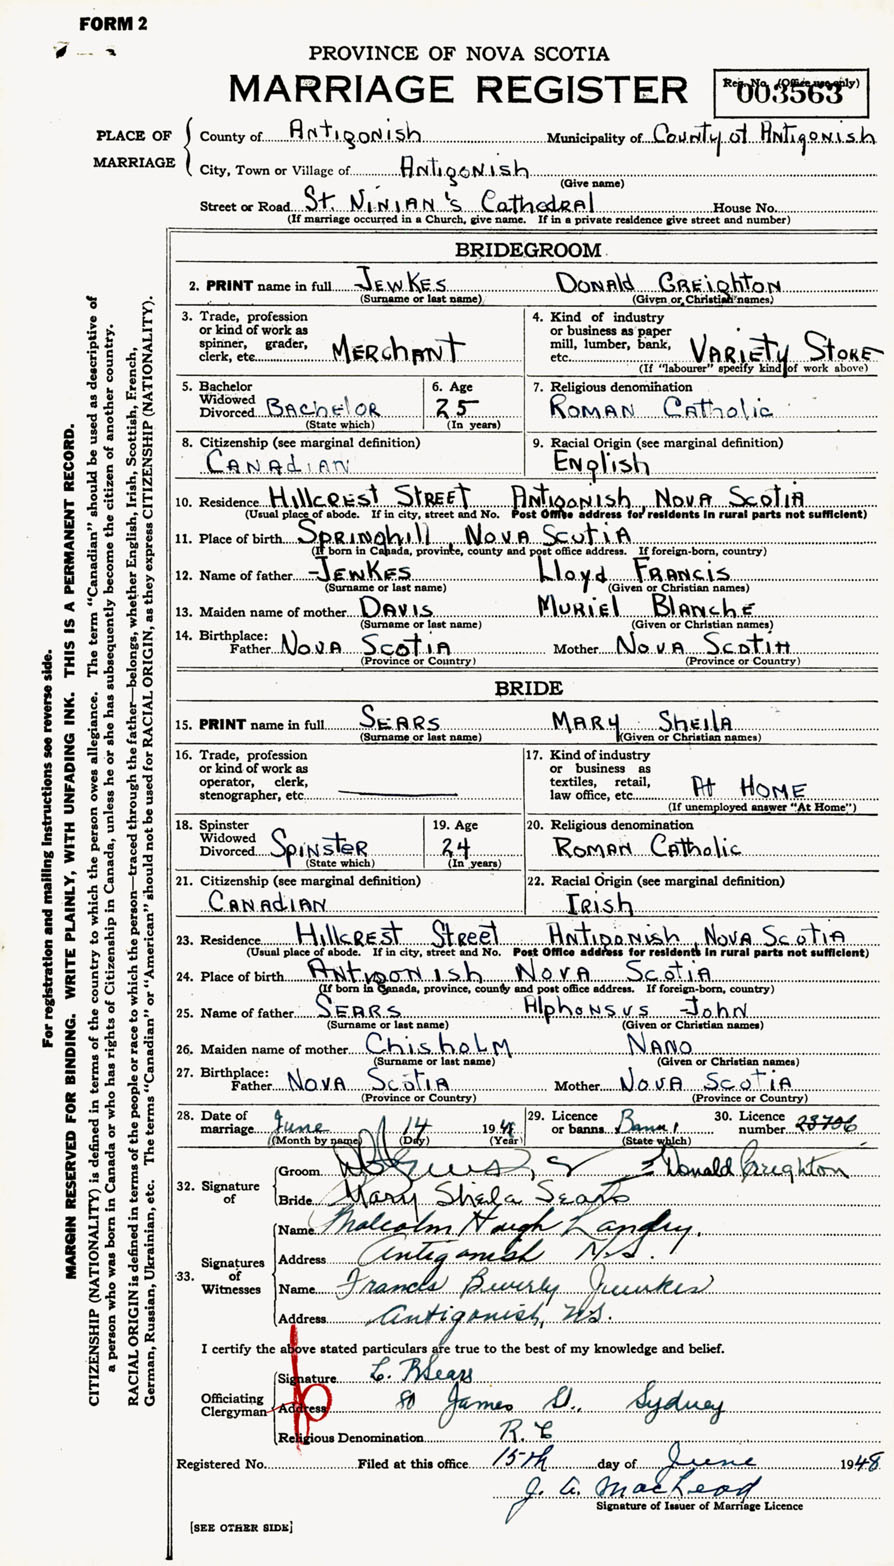 FORM 2
PROVINCE OF NOVA SCOTIA
MARRIAGE REGISTER
Reg. No. (Office use only)
003563
PLACE OF MARRIAGE
County of Antigonish Municipality of County of Antigonish
City, Town or Village of Antigonish
(Give name)
Street or Road St. Ninian's Cathedral House No.
(If marriage occurred in a Church, give name. If in a private residence give street and number)
BRIDEGROOM
2. PRINT name in full JEWKES DONALD CREIGHTON
(Surname or last name) (Given or Christian names)
3. Trade, profession or kind of work as spinner, grader, clerk, etc. MERCHANT
4. Kind of industry or business as paper mill, lumber, bank, etc. VARIETY STORE
(If "labourer" specify kind of work above)
5. Bachelor Widowed Divorced BACHELOR
(State which)
6. Age 25
(In years)
7. Religious denomination
ROMAN Catholic
8. Citizenship (see marginal definition)
CANADIAN
9. Racial Origin (see marginal definition)
English
10. Residence Hillcrest Street Antigonish, Nova Scotia
(Usual place of abode. If in city, street and No. Post Office address for residents in rural parts not sufficient)
11. Place of birth Springhill, Nova Scotia
(If born in Canada, province, county and post office address. If foreign-born, country)
12. Name of father JEWKES Lloyd FRANCIS
(Surname or last name) (Given or Christian names)
13. Maiden name of mother DAVIS MURIEL Blanche
(Surname or last name) (Given or Christian names)
14. Birthplace: Father Nova Scotia Mother Nova Scotia
(Province or Country) (Province or Country)
BRIDE
15. PRINT name in full SEARS MARY Sheila
(Surname or last name) (Given or Christian names)
16. Trade, profession or kind of work as operator, clerk, stenographer, etc.
17. Kind of industry or business as textiles, retail, law office, etc. At HOME
(If unemployed answer "At Home")
18. Spinster Widowed Divorced SPINSTER
(State which)
19. Age 24
(In years)
20. Religious denomination
ROMAN Catholic
21. Citizenship (see marginal definition)
CANADIAN
22. Racial Origin (see marginal definition)
Irish
23. Residence Hillcrest Street Antigonish, Nova Scotia
(Usual place of abode. If in city, street and No. Post Office address for residents in rural parts not sufficient)
24. Place of birth Antigonish Nova Scotia
(If born in Canada, province, county and post office address. If foreign-born, country)
25. Name of father SEARS Alphonsus John
(Surname or last name) (Given or Christian names)
26. Maiden name of mother Chisholm NANO
(Surname or last name) (Given or Christian names)
27. Birthplace: Father Nova Scotia Mother Nova Scotia
(Province or Country) (Province or Country)
28. Date of marriage June 14 1948
(Month by name) (Day) (Year)
29. Licence or banns Banns
(State which)
30. Licence number 23706
32. Signature of
Groom Donald Creighton
Bride Mary Sheila Sears
33. Signatures of Witnesses
Name Malcolm Hough Landry.
Address Antigonish N.S.
Name Francis Beverly Jewkes
Address Antigonish, N.S.
I certify the above stated particulars are true to the best of my knowledge and belief.
Officiating Clergyman
Signature C. B Sears
Address 80 James St., Sydney
Religious Denomination R. C
Registered No. Filed at this office 15th day of June 1948
J. A. MacLeod
Signature of Issuer of Marriage Licence
[SEE OTHER SIDE]
For registration and mailing instructions see reverse side.
MARGIN RESERVED FOR BINDING. WRITE PLAINLY, WITH UNFADING INK. THIS IS A PERMANENT RECORD.
CITIZENSHIP (NATIONALITY) is defined in terms of the country to which the person owes allegiance. The term "Canadian" should be used as descriptive of
a person who was born in Canada or who has rights of Citizenship in Canada, unless he or she has subsequently become the citizen of another country.
RACIAL ORIGIN is defined in terms of the people or race to which the person—traced through the father—belongs, whether English, Irish, Scottish, French,
German, Russian, Ukrainian, etc. The terms "Canadian" or "American" should not be used for RACIAL ORIGIN, as they express CITIZENSHIP (NATIONALITY).